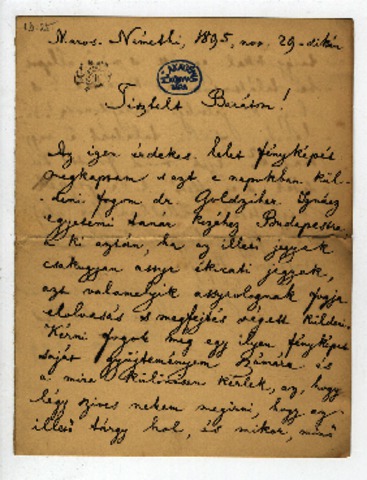 Maros-Németi, 1895, nov. 29-dikén
M. AKADÉMIA KÖNYVTÁRA
Tisztelt Barátom!
Az igen érdekes lelet fényképét
megkaptam s azt e napokban kül-
deni fogom dr. Goldziher Ignácz
egyetemi tanár kezéhez Budapestre
a ki aztán, ha az illető jegyek
csakugyan assyr ékirati jegyek,
azt valamelyik assyrolognak fogja
elolvasás s megfejtés végett küldeni.
Kérni fogok még egy ilyen fényképet
saját gyűjteményem számára és
a mire különösen kérlek, az, hogy
légy szives nekem megirni, hogy az
illető tárgy hol, és mikor, minő